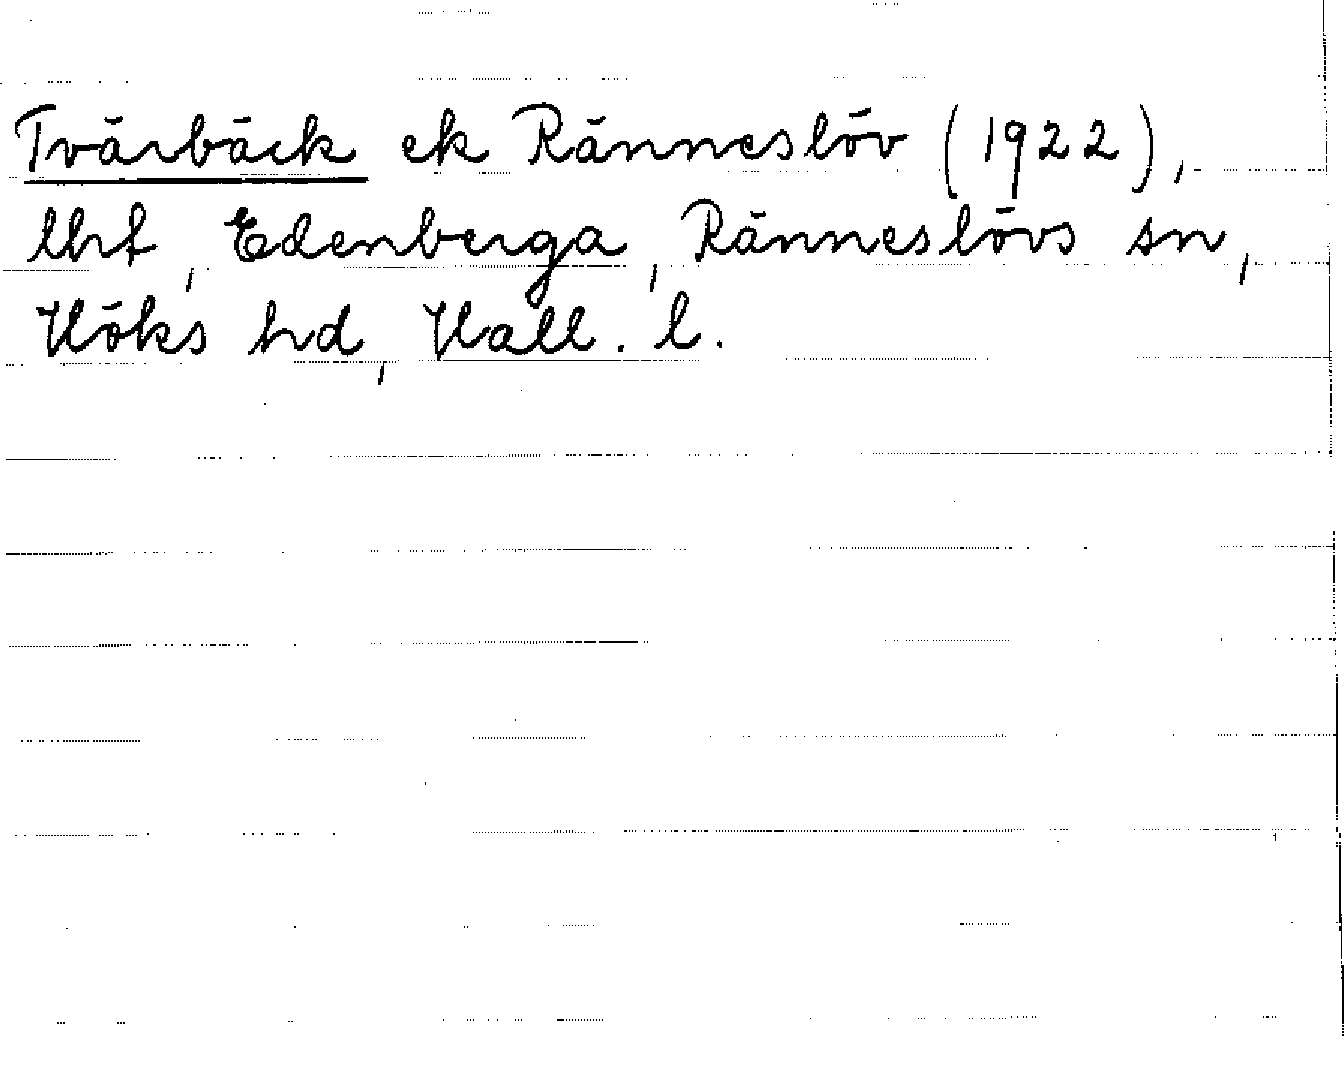 Tvärbäck ek Ränneslöv (1922),
lht, Edenberga, Ränneslövs sn,
Höks hd, Hall. l.